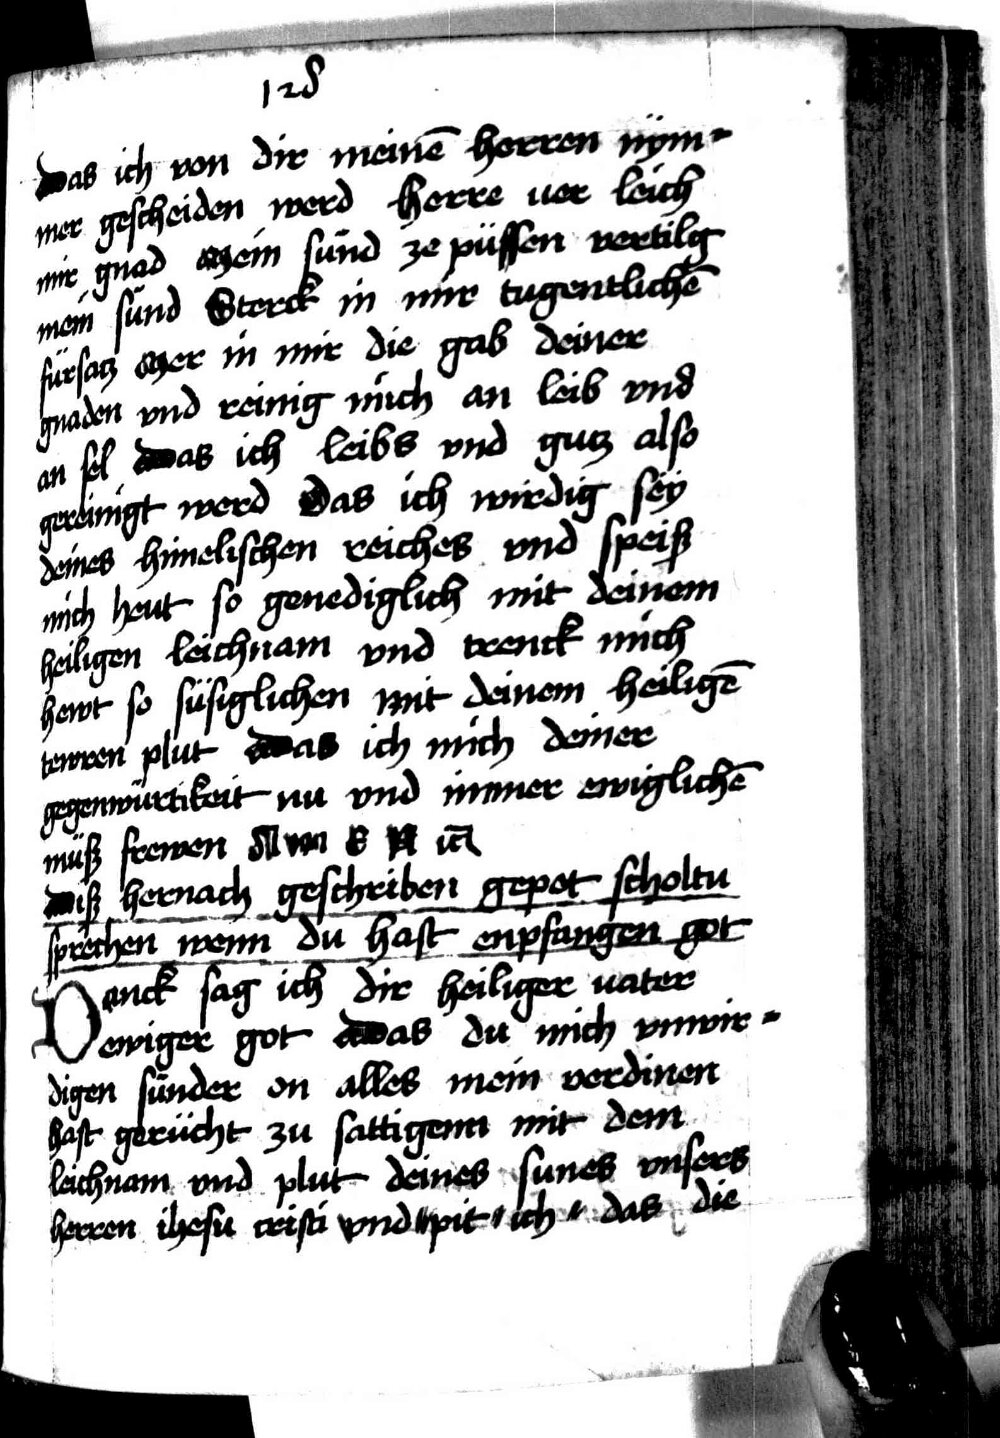 128
Das ich von dir meinē herren nÿm-
mer gescheiden werd Herre uer leich
mir gnad Mein sünd ze püssen vertilg
mein sünd Sterck in mir tugentlichē
fürsatz Mer in mir die gab deiner
gnaden vnd reinig mich an leib vnd
an sel Das ich leibs vnd gutz also
gereinigt werd Das ich wirdig seÿ
deines himelischen reiches vnd speiß
mich heut so genediglich mit deinem
heiligen leichnam vnd trenck mich
hewt so süsiglichen mit deinem heiligē
tewren plut Das ich mich deiner
gegenwürtikeit nu vnd immer ewiglichē
müß frewen Am E N
Diß hernach geschriben gepet scholtu
sprechen wenn du hast enpfangen got
Danck sag ich dir heiliger uater
ewiger got Das du mich vnwir-
digen sünder on alles mein verdinen
hast gerücht zu sattigenn mit dem
leichnam vnd plut deines sunes vnsers
herren ihesu cristi vnd pit ich das die